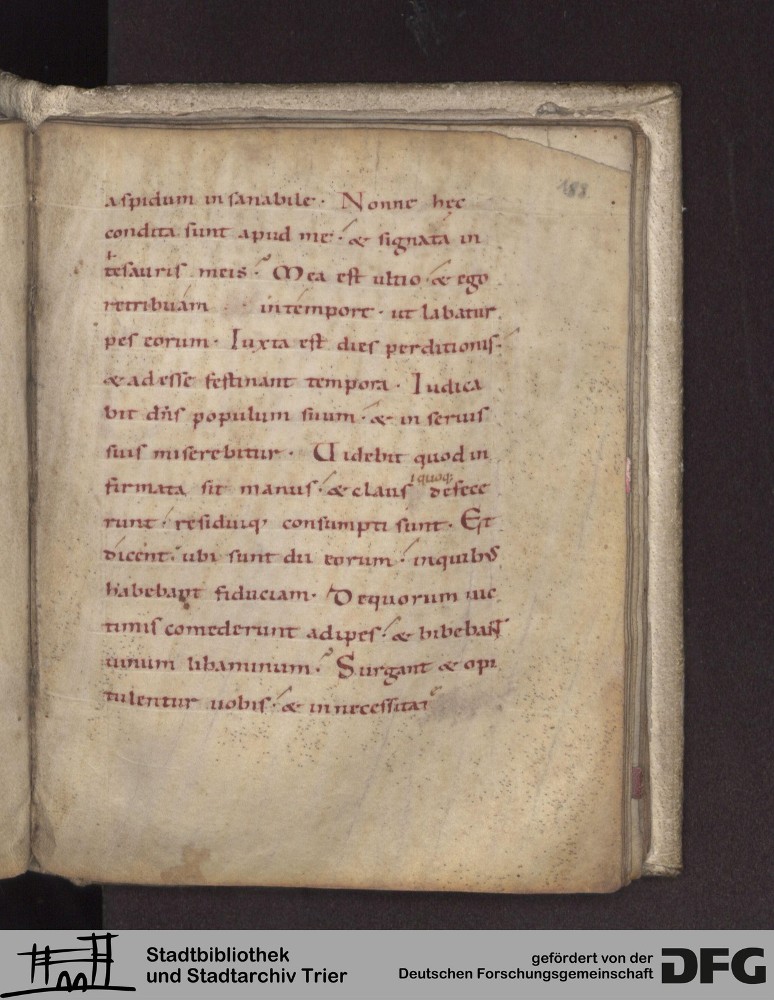 188
aspidum insanabile · Nonne hęc
condita sunt apud me · & signata in
tesauris meis · Mea est ultio · & ego
retribuam intempore · ut labatur
pes eorum · Iuxta est dies perditionis ·
& adesse festinant tempora · Iudica
bit dn̄s populum suum · & in seruis
suis miserebitur · Uidebit quod in
firmata sit manus · & clausi quoq; defece
runt · residuiq; consumpti sunt · Et
dicent · ubi sunt dii eorum · inquibus
habebant fiduciam · De quorum uic
timis comederunt adipes · & bibebant
uinum libaminum · Surgant & opi
tulentur uobis · & innecessitat
Stadtbibliothek
und Stadtarchiv Trier
gefördert von der
Deutschen Forschungsgemeinschaft
DFG